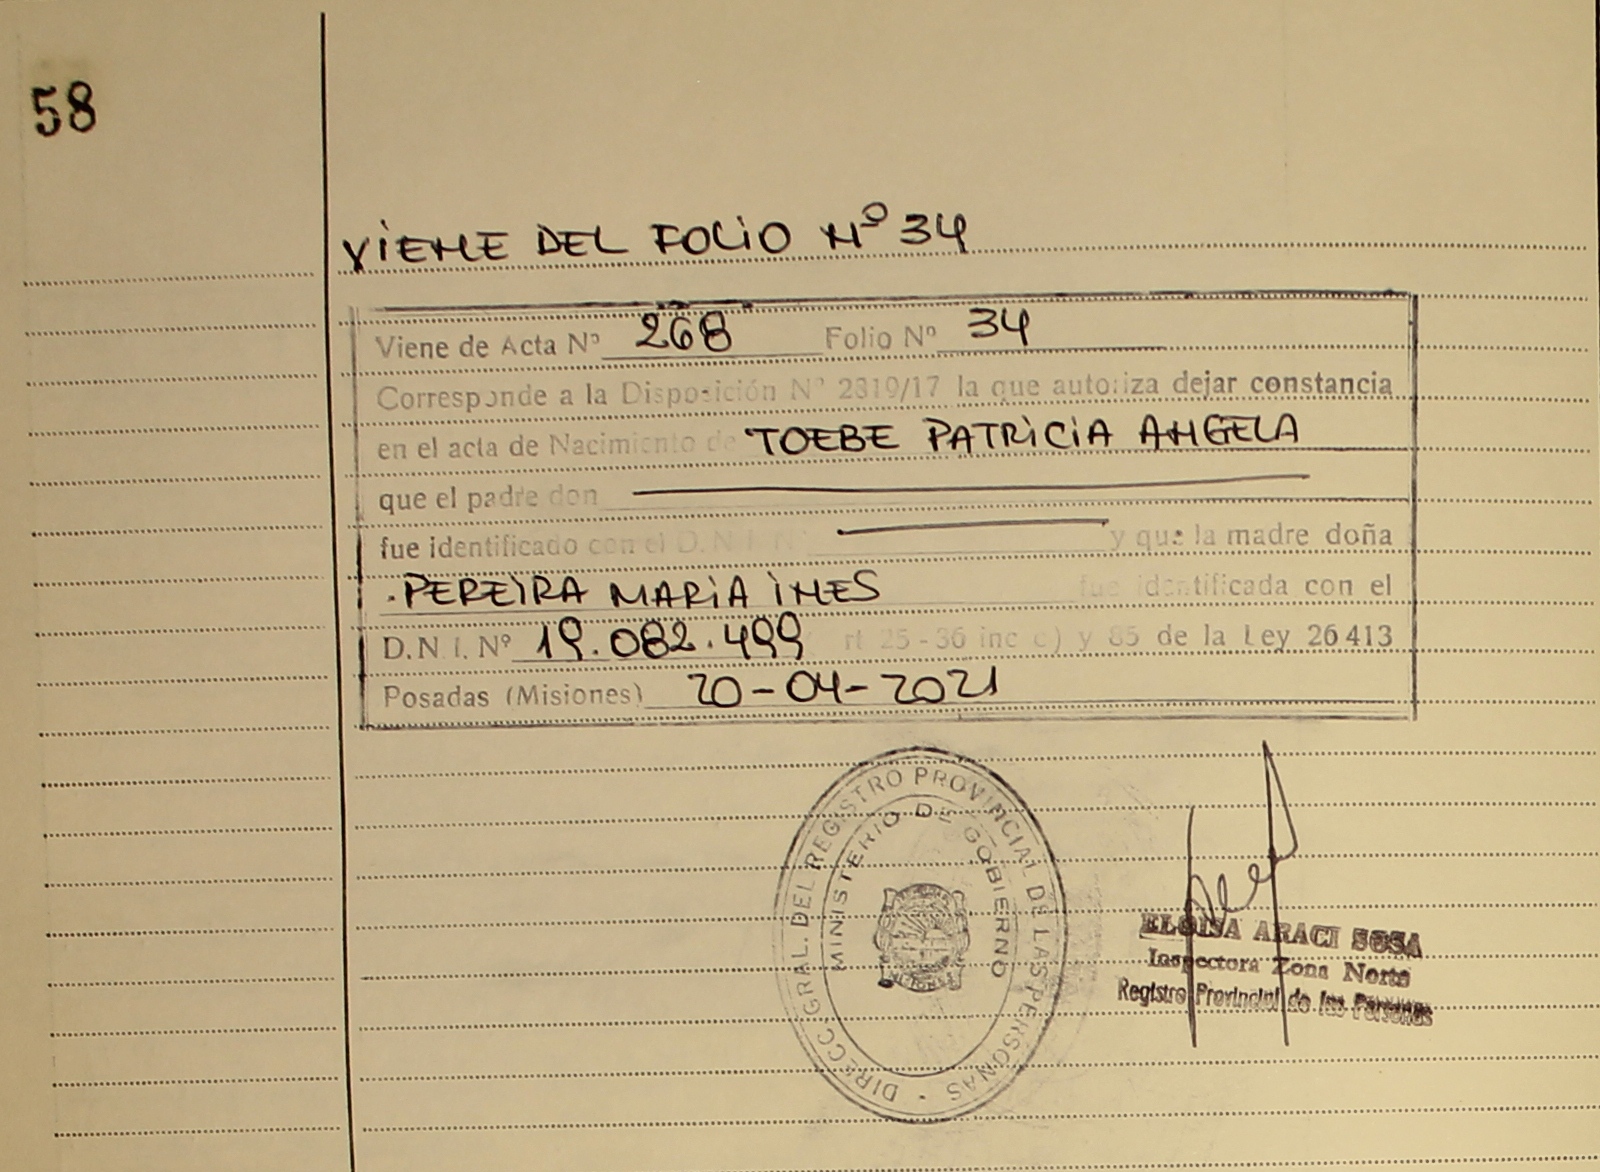 58
VIENE DEL FOLIO Nº 34
Viene de Acta Nº 268 Folio Nº 34
Corresponde a la Disposición Nº 2319/17 la que autoriza dejar constancia
en el acta de Nacimiento de TOEBE PATRICIA ANGELA
que el padre don
fue identificado con el D.N.I. Nº y que la madre doña
PEREIRA MARIA INES fue identificada con el
D.N.I. Nº 19.082.499 rt 25-36 inc c) y 85 de la Ley 26413
Posadas (Misiones) 20-04-2021
DIRECC. GRAL. DEL REGISTRO PROVINCIAL DE LAS PERSONAS
MINISTERIO DE GOBIERNO
ELOISA ARACI SOSA
Inspectora Zona Norte
Registro Provincial de las Personas